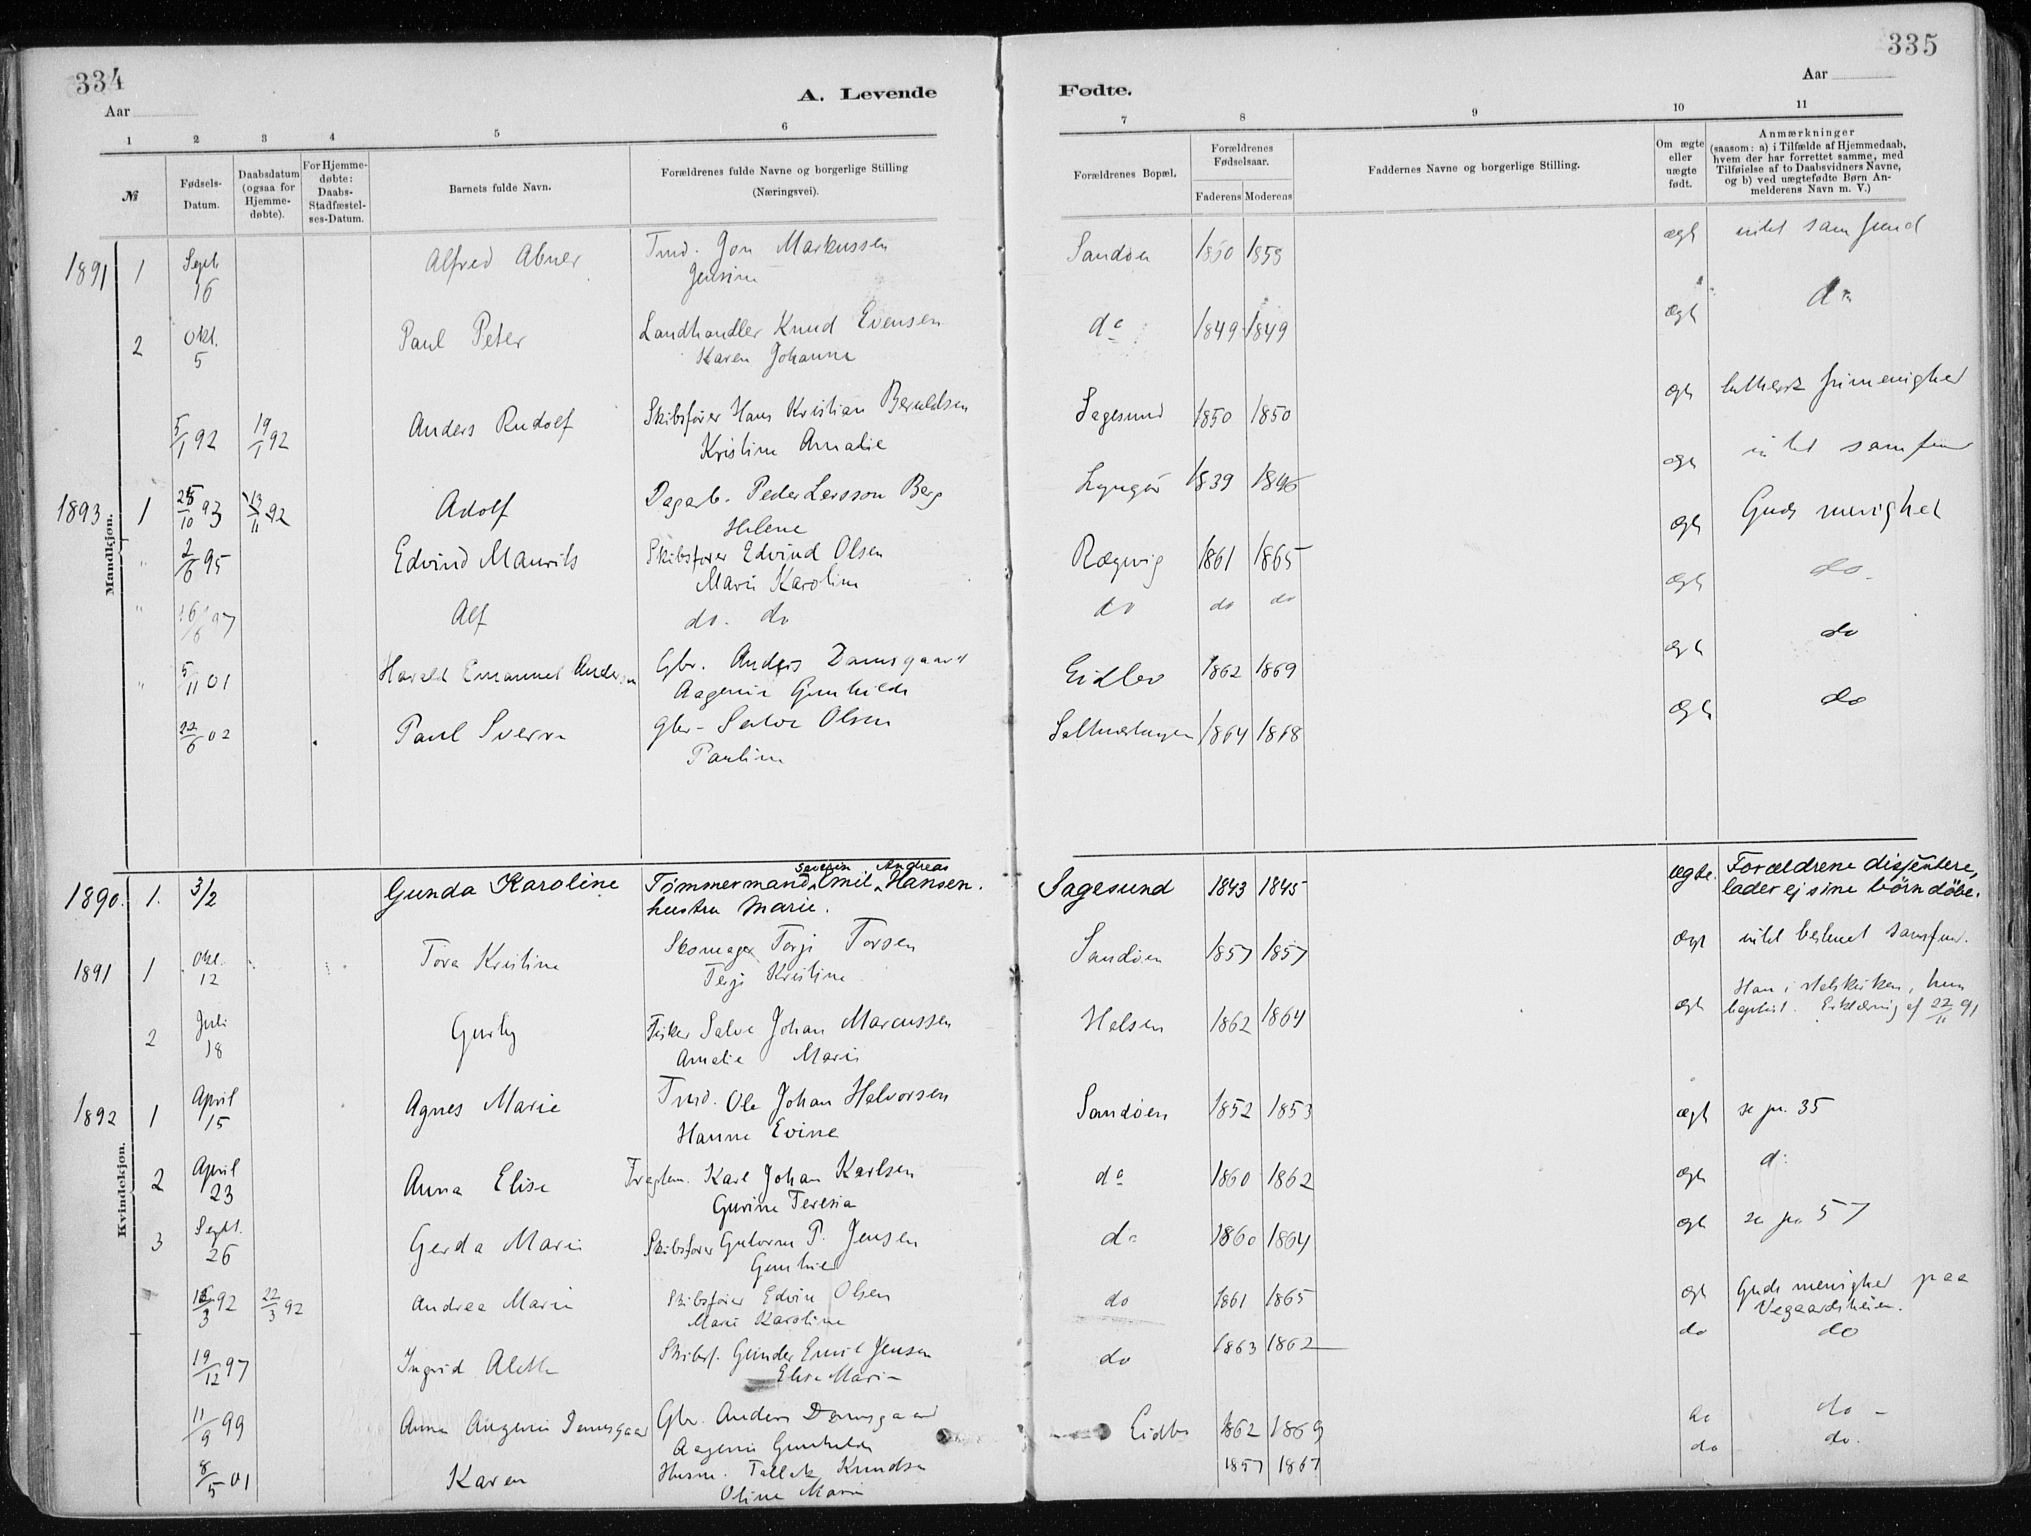 334
Aar
A. Levende
1 2 3 4 5 6
№
Fødsels-Datum.
Daabsdatum (ogsaa for Hjemme-døbte).
For Hjemme-døbte: Daabs-Stadfæstel-ses-Datum.
Barnets fulde Navn.
Forældrenes fulde Navne og borgerlige Stilling
(Næringsvei).
335
Aar
Fødte.
7 8 9 10 11
Forældrenes Bopæl.
Forældrenes Fødselsaar.
Faderens Moderens
Faddernes Navne og borgerlige Stilling.
Om ægte eller uægte født.
Anmærkninger
(saasom: a) i Tilfælde af Hjemmedaab,
hvem der har forrettet samme, med
Tilføielse af to Daabsvidners Navne,
og b) ved uægtefødte Børn An-
melderens Navn m. V.)
Mandkjøn.
1891 1 Sept 16 Alfred Abner Tmd. Jon Markussen Sandøen 1860 1859 ægt intet samfund
Jensine
2 Okt. 5 Paul Peter Landhandler Knud Evensen do 1849 1849 ægt do
Karen Johanne
5/1 92 19/1 92 Anders Rudolf Skibsfører Hans Kristian Beruldsen Sagesund 1850 1850 ægt luthersk frimenighed
Kristine Amalie
1893 1 25/10 93 13/11 92 Adolf Dagarb. Peder Larsson Berg Lyngør 1839 1846 ægt intet samfund
Helene
" 2/6 95 Edvind Maurits Skibsfører Edvind Olsen Rægvig 1861 1865 ægt Guds menighet
Marie Karoline
" 16/6 97 Alf do. do do do do ægt do
" 5/11 01 Harald Emanuel Anders Gbr. Anders Damsgaard Eidbo 1862 1869 ægt do
Aagenie Gunhilde
22/6 02 Paul Sverre gbr. Salve Olsen 1864 1868 ægt do
Pauline
Kvindekjøn.
1890. 1. 3/2 Gunda Karoline Tømmermand Emil Severin Andreas Hansen. Sagesund 1843 1845 ægte. Forældrene dissentere,
hustru Marie. lader ej sine børn døbe.
1891 1 Okt. 12 Tora Kristine Skomager Terje Torsen Sandøen 1857 1857 ægt intet bestemt samfun.
Terje Kristine
2 Juli 18 Gurly Fisker Salve Johan Marcussen Holsen 1862 1864 ægt Han i statskirken, hun
Amalie Marie baptist. Erklæring af 22/11 91
1892 1 April 15 Agnes Marie Tmd. Ole Johan Halvorsen Sandøen 1852 1853 ægt se pr. 35
Hanne Evine
2 April 23 Anna Elise Karl Johan Karlsen do 1860 1862 ægt do
Gurine Teresia
3 Sept. 26 Gerda Marie Skibsfører Gutorm P. Jensen do 1860 1864 ægt se pr. 57
Gunhild
16/3 92 22/3 92 Andrea Marie Skibsfører Edvin Olsen do 1861 1865 ægt Guds menighed paa
Marie Karoline Vegaardsheien.
19/12 97 Ingrid Alette Skibsf. Gunder Emil Jensen do 1863 1862 do do
Elise Marie
11/9 99 Anna Aagenie Damsgaar Gbr. Anders Damsgaard Eidbo 1862 1869 do do
Aagenie Gunhilde
8/5 01 Karen Husm. Tallak Knudsen 1857 1867 do do.
Oline Marie